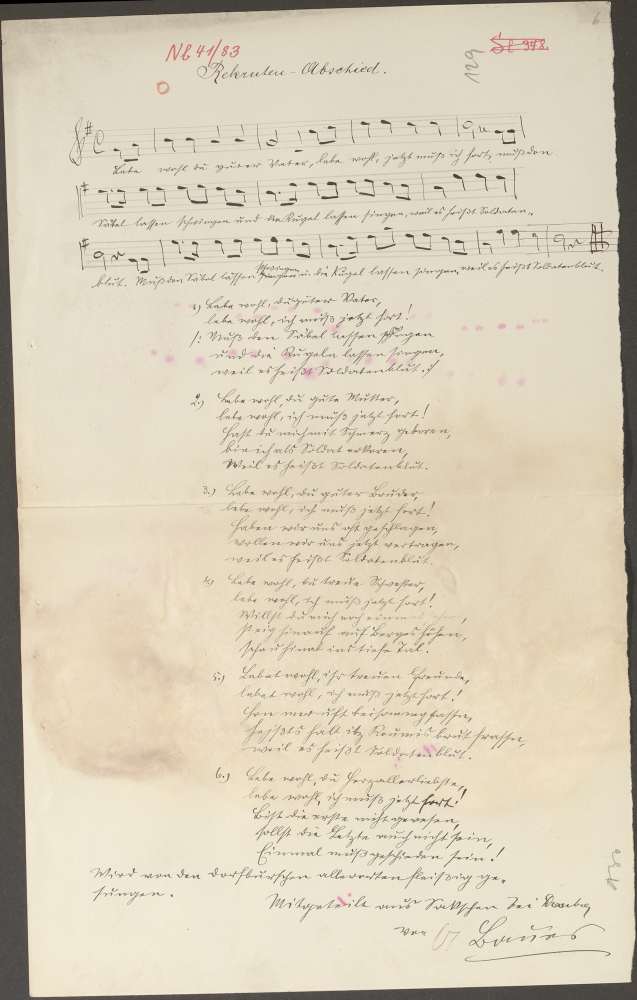 6
Nb 41/83
129
Sl 378.
Rekruten-Abschied.
Lebe wohl du guter Vater, lebe wohl, jetzt muß ich fort, muß den
Säbel lassen schwingen und die Kugel lassen singen, weil es heißt Soldaten-
blut. Muß den Säbel lassen schwingen u. die Kugel lassen singen, weil es heißt Soldatenblut.
1) Lebe wohl, du guter Vater,
lebe wohl, ich muß jetzt fort!
/: Muß den Säbel lassen schwingen
und die Kugeln lassen singen,
weil es heißt Soldatenblut :/
2.) Lebe wohl, du gute Mutter,
lebe wohl, ich muß jetzt fort!
Hast du mich mit Schmerz geboren,
bin ich als Soldat erkoren,
Weil es heißt Soldatenblut.
3.) Lebe wohl, du guter Bruder,
lebe wohl, ich muß jetzt fort!
Haben wir uns oft geschlagen,
wollen wir uns jetzt vertragen,
weil es heißt Soldatenblut.
4.) Lebe wohl, du treue Schwester,
lebe wohl, ich muß jetzt fort!
Willst du mich noch einmal
steig hinauf auf Berges Höhen,
schau hinab ins tiefe Tal.
5.) Lebet wohl, ihr treuen Freunde,
lebet wohl, ich muß jetzt fort!
oft
weil es heißt Soldatenblut.
6.) Lebe wohl, du Herzallerliebste,
lebe wohl, ich muß jetzt fort!
Bist die erste nicht gewesen,
sollst die Letzte auch nicht sein,
Einmal muß geschieden sein!
Wird von den Dorfburschen allerorten fleißig ge-
sungen.
Mitgeteilt aus bei
von Bauer